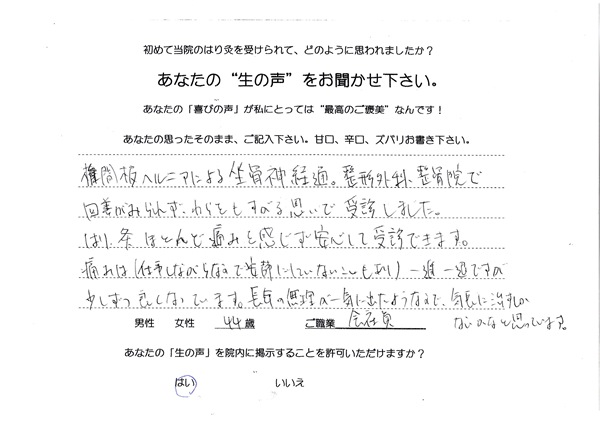 初めて当院のはり灸を受けられて、どのように思われましたか？
あなたの“生の声”をお聞かせ下さい。
あなたの「喜びの声」が私にとっては“最高のご褒美”なんです！
あなたの思ったそのまま、ご記入下さい。甘口、辛口、ズバリお書き下さい。
椎間板ヘルニアによる坐骨神経通。整形外科、整骨院で
回善がみられず、わらをもすがる思いで受診しました。
はり、灸はほとんど痛みを感じず安心して受診できます。
痛みは（仕事しながらなので安静にしていないこともあり）一進一退ですが
少しずつ良くなっています。長年の無理が一気に出たようなので、気長に治すしか
ないかなと思っています。
男性　女性　44歳　ご職業　会社員
あなたの「生の声」を院内に掲示することを許可いただけますか？
はい　いいえ